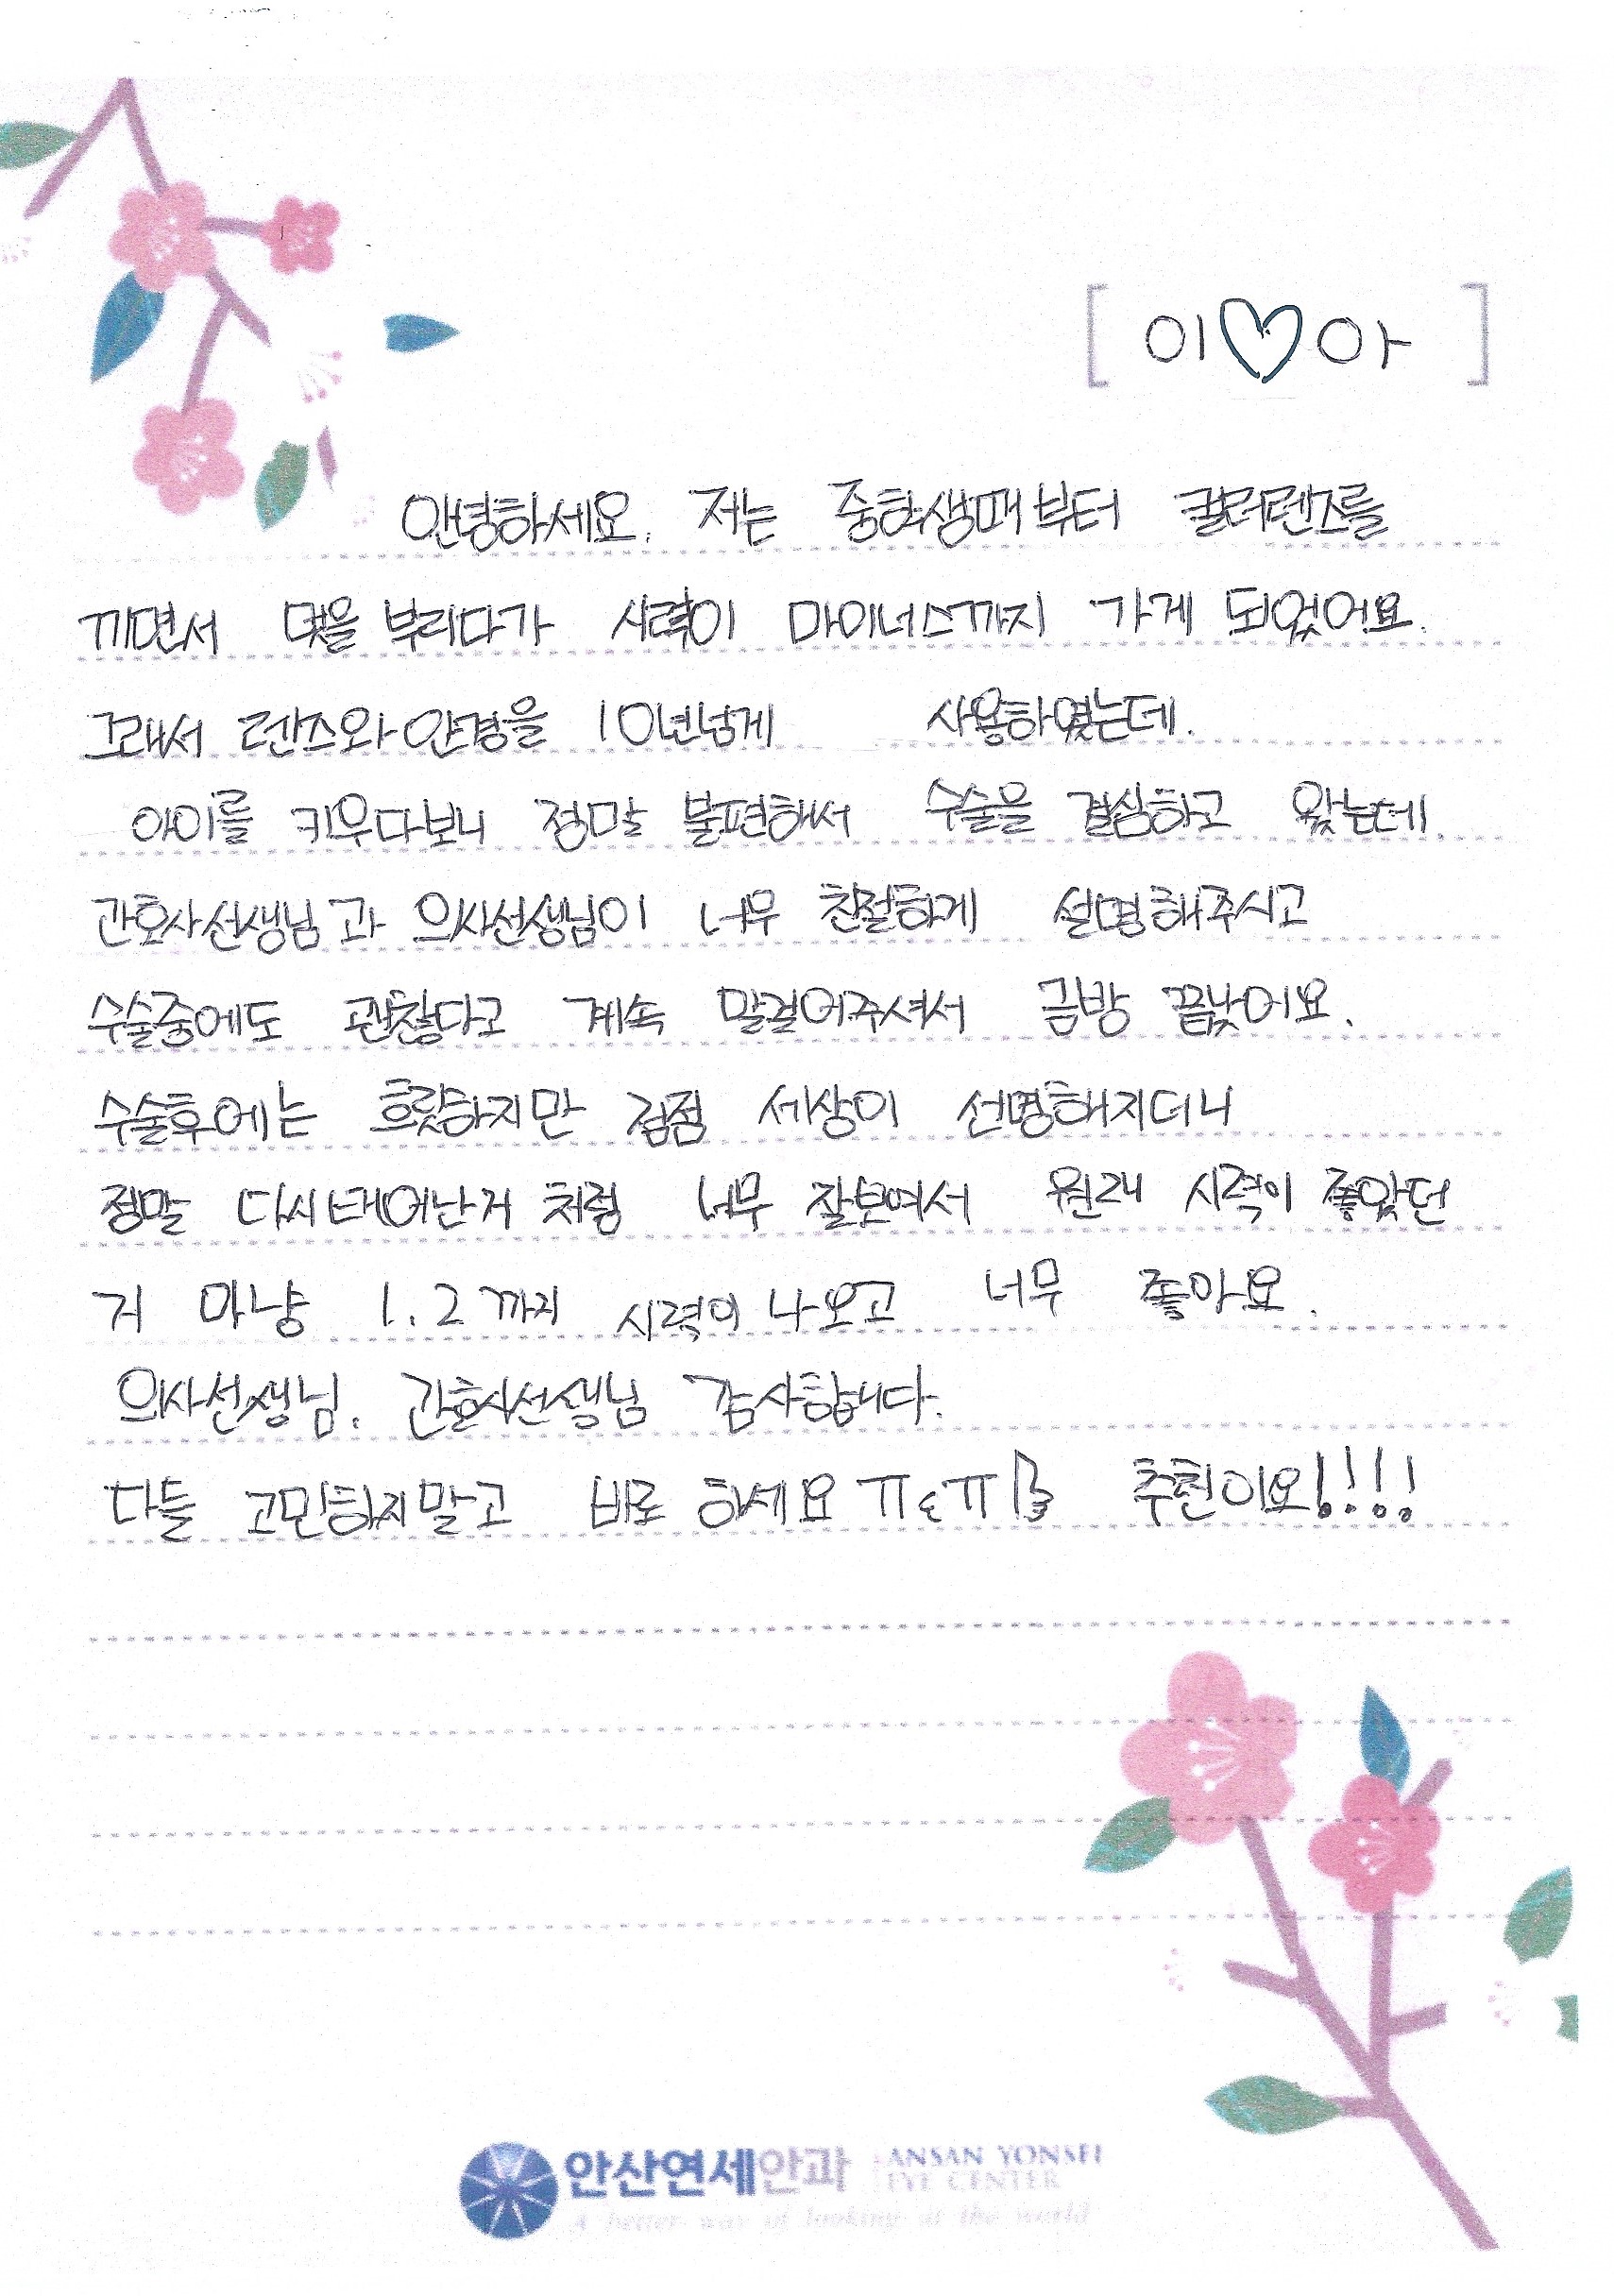 [ 이♡아 ]
안녕하세요. 저는 중학생때부터 컬러렌즈를
끼면서 멋을 부리다가 시력이 마이너스까지 가게 되었어요.
그래서 렌즈와 안경을 10년넘게 사용하였는데.
아이를 키우다보니 정말 불편해서 수술을 결심하고 왔는데.
간호사선생님과 의사선생님이 너무 친절하게 설명해주시고
수술중에도 괜찮다고 계속 말걸어주셔서 금방 끝났어요.
수술후에는 흐릿하지만 점점 세상이 선명해지더니
정말 다시태어난거 처럼 너무 잘보여서 원래 시력이 좋았던
거 마냥 1.2까지 시력이 나오고 너무 좋아요.
의사선생님. 간호사선생님 감사합니다.
다들 고민하지말고 바로 하세요 ㅠㅠ 추천이요!!!!
안산연세안과 ANSAN YONSEI
EYE CENTER
A better way of looking at the world